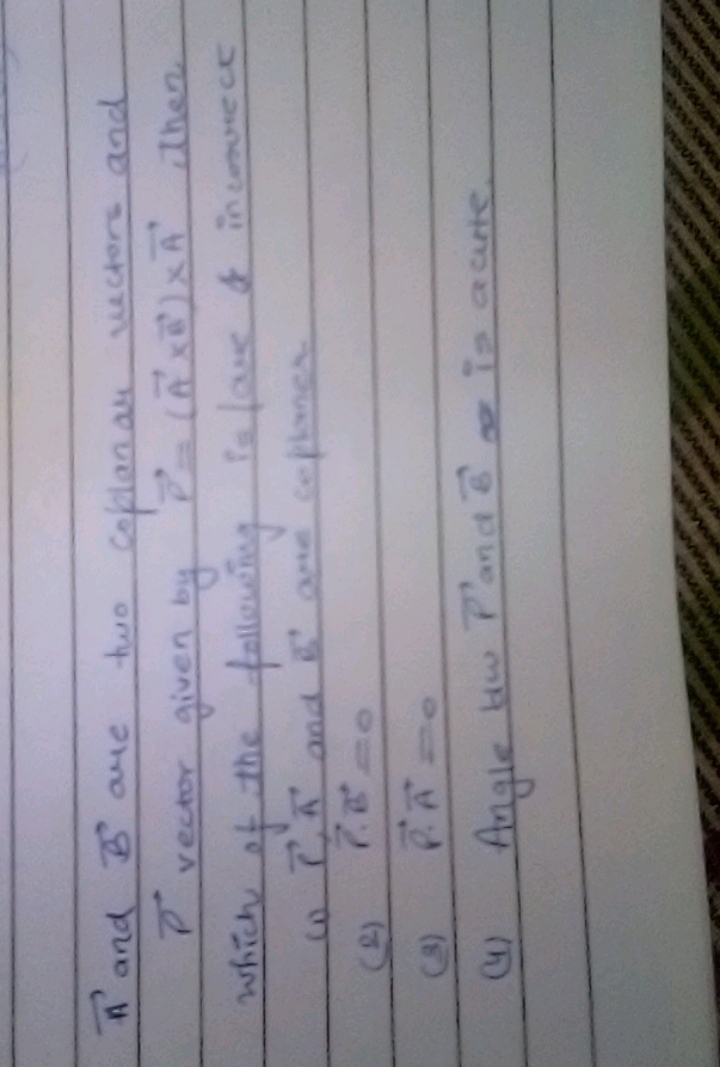 A⃗ and B⃗ are two coplanar vectors and
P⃗ vector given by P⃗ = (A⃗ × B⃗) × A⃗ then
which of the following is/are incorrect
(1) P⃗, A⃗ and B⃗ are coplaner
(2) P⃗. B⃗ = 0
(3) P⃗. A⃗ = 0
(4) Angle b/w P⃗ and B⃗ is acute.